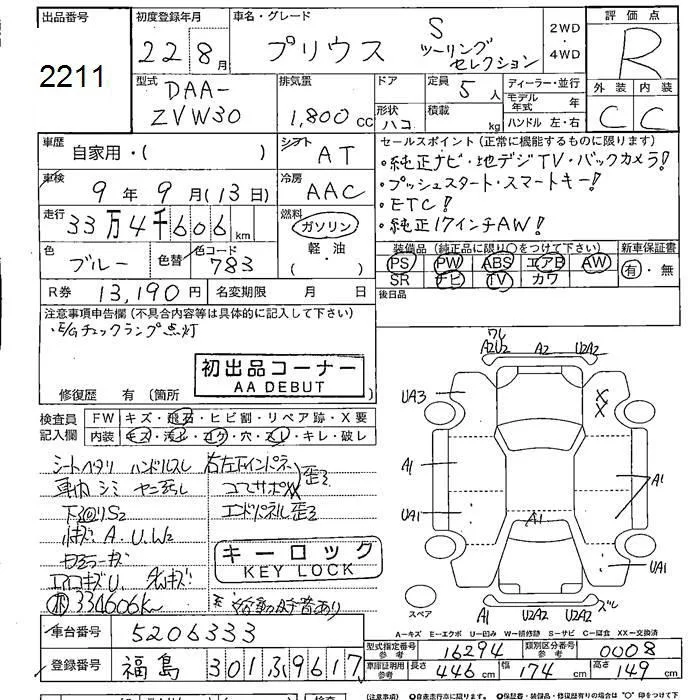 出品番号
2211
初度登録年月
22 8月
車名・グレード
プリウス
S
ツーリング
セレクション
2WD
・
4WD
評価点
R
外装 内装
C C
型式
DAA-
ZVW30
排気量
1,800 cc
ドア
形状
ハコ
定員
5人
積載
kg
ディーラー・並行
モデル年式 年
ハンドル 左・右
車歴
自家用・( )
シフト
AT
車検
9年9月(13日)
冷房
AAC
走行
33万4千606km
燃料
ガソリン
軽・油
・( )
色
ブルー
色替
色コード
783
R券 13,190円
名変期限 月 日
セールスポイント(正常に機能するものに限ります)
・純正ナビ・地デジTV・バックカメラ!
・プッシュスタート・スマートキー!
・ETC!
・純正17インチAW!
装備品(純正品に限り○をつけて下さい)
PS PW ABS エアB AW
SR ナビ TV カワ
新車保証書
有・無
後日品
注意事項申告欄(不具合内容等は具体的に記入して下さい)
・E/Gチェックランプ点灯
初出品コーナー
AA DEBUT
修復歴 有(箇所
検査員
記入欄
FW キズ・飛石・ヒビ割・リペア跡・X要
内装 キズ・汚レ・コゲ・穴・スレ・キレ・破レ
シートヘタリ ハンドルスレ
右左下インパネ
車内シミ ヤニ汚レ
コアサポX
歪ミ
下回リS2
エンドパネル歪ミ
A.U.W2
キーロック
KEY LOCK
エアロキズU.
334606K
異音あり
ワレ
A2U2 A2 U2A2
UA3
X
X
A1
A1
UA1
A1
UA1
スペア
A1 U2A2 U2A2 ズレ
A-キズ E-エクボ U-凹み W-補修跡 S-サビ C-腐食 XX-交換済
車台番号 5206333
登録番号 福島 301 ふ 9617
型式指定番号
参考
16294
類別区分番号
参考
0008
車庫証明用
参考
長さ
446cm
幅
174cm
高さ
149cm